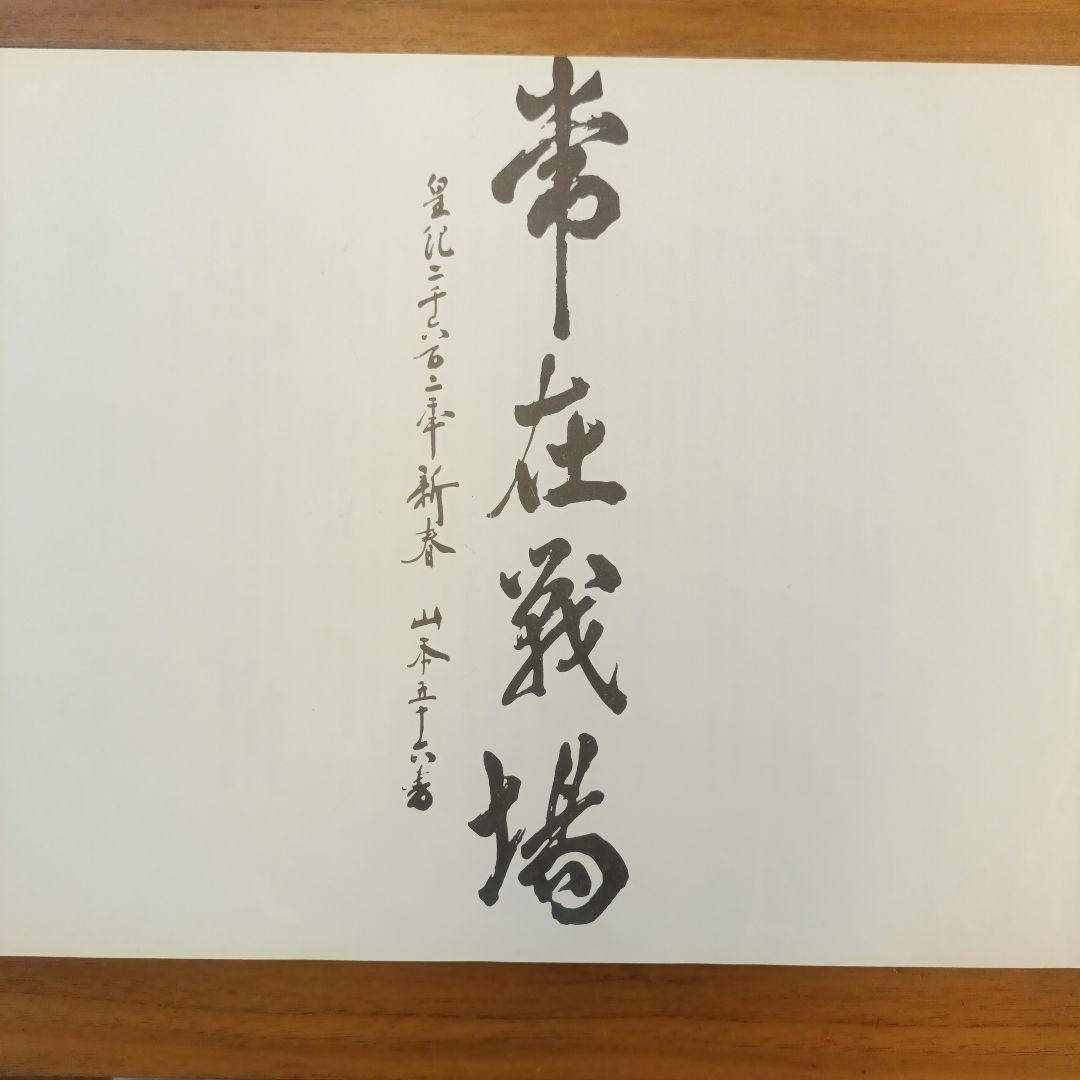 常在戦場
皇紀二千六百二年新春 山本五十六書